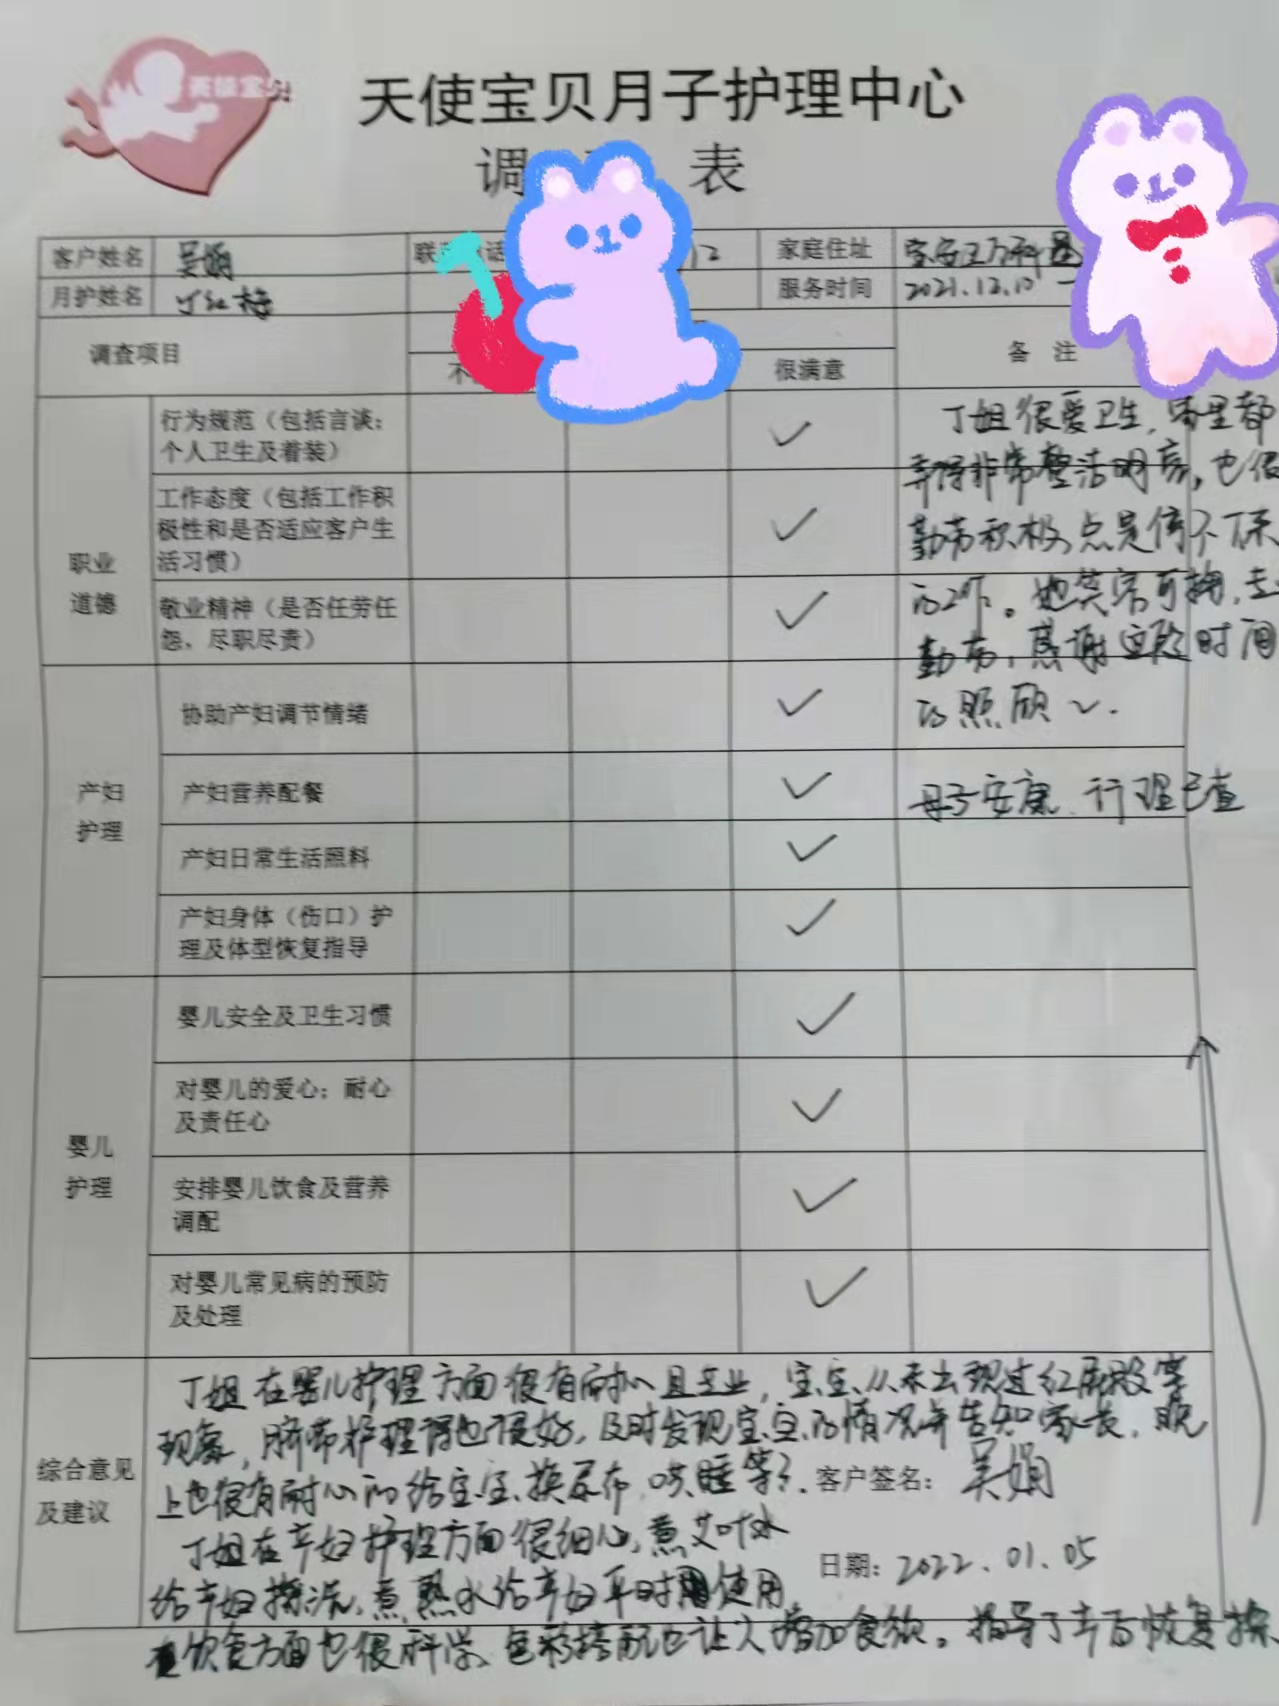 天使宝贝月子护理中心
调 表
客户姓名 吴娟 联 话 12 家庭住址 宝安区万科
月护姓名 丁红梅 服务时间 2021.12.10 一
调查项目 不 很满意 备 注
职业道德
行为规范（包括言谈；
个人卫生及着装）
工作态度（包括工作积
极性和是否适应客户生
活习惯）
敬业精神（是否任劳任
怨、尽职尽责）
丁姐很爱卫生，哪里都
弄得非常整洁明亮，也很
勤劳积极，总是停不下来
的工作。她笑容可掬，
勤劳，感谢这段时间
的照顾～.
产妇
护理
协助产妇调节情绪
产妇营养配餐
母子安康、行理已查
产妇日常生活照料
产妇身体（伤口）护
理及体型恢复指导
婴儿
护理
婴儿安全及卫生习惯
对婴儿的爱心；耐心
及责任心
安排婴儿饮食及营养
调配
对婴儿常见病的预防
及处理
综合意见
及建议
丁姐在婴儿护理方面很有耐心且专业，宝宝从未出现过红屁股等
现象，脐带护理得也很好，及时发现宝宝的情况并告知家长，晚
上也很有耐心的给宝宝换尿布、哄睡等等.
客户签名：吴娟
丁姐在产妇护理方面很细心，煮艾叶水
给产妇擦洗，煮熟水给产妇平时使用
日期：2022.01.05
饮食方面也很科学、色彩搭配也让人增加食欲。指导了产后恢复操